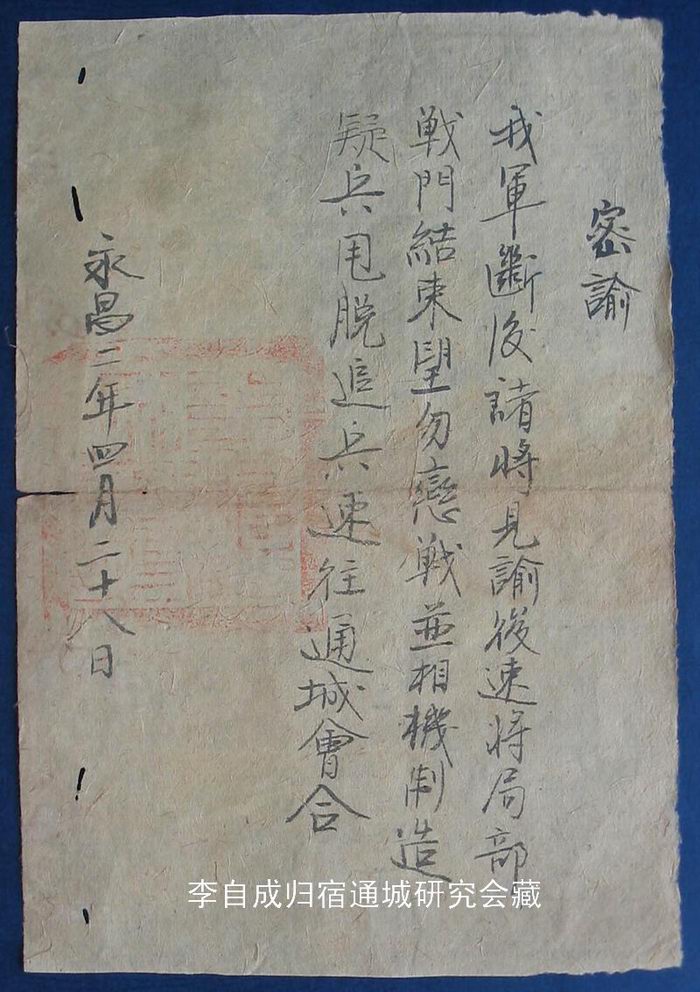 密諭
我軍斷後諸將見諭後速将局部
战門結束望勿戀战並相機制造
疑兵甩脱追兵速往通城會合
永昌二年四月二十八日
李自成归宿通城研究会藏